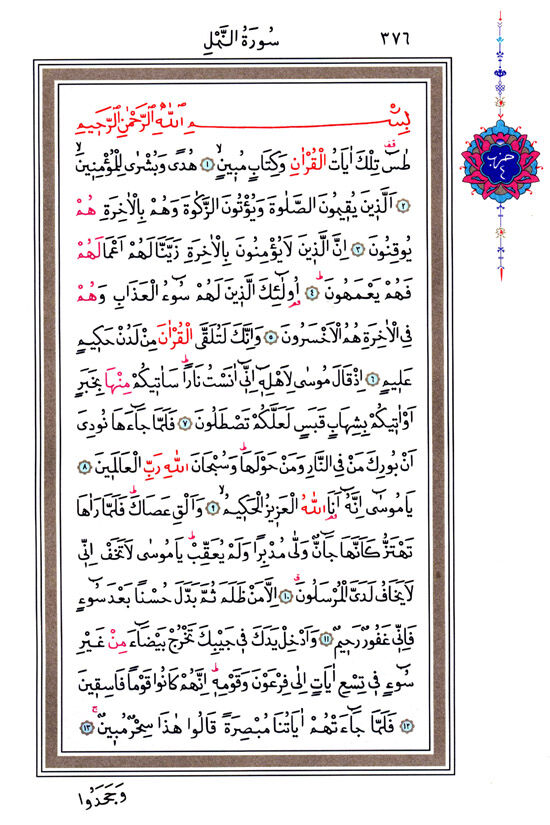 ٣٧٦
سُورَةُ النَّمْلِ
حزب ٤
بِسْمِ اللّٰهِ الرَّحْمٰنِ الرَّحٖيمِ
طٰسٓ تِلْكَ اٰيَاتُ الْقُرْاٰنِ وَكِتَابٍ مُبٖينٍۙ ﴿١﴾ هُدًى وَبُشْرٰى لِلْمُؤْمِنٖينَۙ
﴿٢﴾ اَلَّذٖينَ يُقٖيمُونَ الصَّلٰوةَ وَيُؤْتُونَ الزَّكٰوةَ وَهُمْ بِالْاٰخِرَةِ هُمْ
يُوقِنُونَ ﴿٣﴾ اِنَّ الَّذٖينَ لَا يُؤْمِنُونَ بِالْاٰخِرَةِ زَيَّنَّا لَهُمْ اَعْمَالَهُمْ
فَهُمْ يَعْمَهُونَۜ ﴿٤﴾ اُو۬لٰٓئِكَ الَّذٖينَ لَهُمْ سُٓوءُ الْعَذَابِ وَهُمْ
فِي الْاٰخِرَةِ هُمُ الْاَخْسَرُونَ ﴿٥﴾ وَاِنَّكَ لَتُلَقَّى الْقُرْاٰنَ مِنْ لَدُنْ حَكٖيمٍ
عَلٖيمٍ ﴿٦﴾ اِذْ قَالَ مُوسٰى لِاَهْلِهٖٓ اِنّٖٓي اٰنَسْتُ نَارًاۜ سَاٰتٖيكُمْ مِنْهَا بِخَبَرٍ
اَوْ اٰتٖيكُمْ بِشِهَابٍ قَبَسٍ لَعَلَّكُمْ تَصْطَلُونَ ﴿٧﴾ فَلَمَّا جَٓاءَهَا نُودِيَ
اَنْ بُورِكَ مَنْ فِي النَّارِ وَمَنْ حَوْلَهَاۜ وَسُبْحَانَ اللّٰهِ رَبِّ الْعَالَمٖينَ ﴿٨﴾
يَا مُوسٰٓى اِنَّهُٓ اَنَا اللّٰهُ الْعَزٖيزُ الْحَكٖيمُۙ ﴿٩﴾ وَاَلْقِ عَصَاكَۜ فَلَمَّا رَاٰهَا
تَهْتَزُّ كَاَنَّهَا جَٓانٌّ وَلّٰى مُدْبِرًا وَلَمْ يُعَقِّبْۜ يَا مُوسٰى لَا تَخَفْ اِنّٖي
لَا يَخَافُ لَدَيَّ الْمُرْسَلُونَۗ ﴿١٠﴾ اِلَّا مَنْ ظَلَمَ ثُمَّ بَدَّلَ حُسْنًا بَعْدَ سُٓوءٍ
فَاِنّٖي غَفُورٌ رَحٖيمٌ ﴿١١﴾ وَاَدْخِلْ يَدَكَ فٖي جَيْبِكَ تَخْرُجْ بَيْضَٓاءَ مِنْ غَيْرِ
سُٓوءٍ فٖي تِسْعِ اٰيَاتٍ اِلٰى فِرْعَوْنَ وَقَوْمِهٖۜ اِنَّهُمْ كَانُوا قَوْمًا فَاسِقٖينَ
﴿١٢﴾ فَلَمَّا جَٓاءَتْهُمْ اٰيَاتُنَا مُبْصِرَةً قَالُوا هٰذَا سِحْرٌ مُبٖينٌۚ ﴿١٣﴾
وَجَحَدُوا